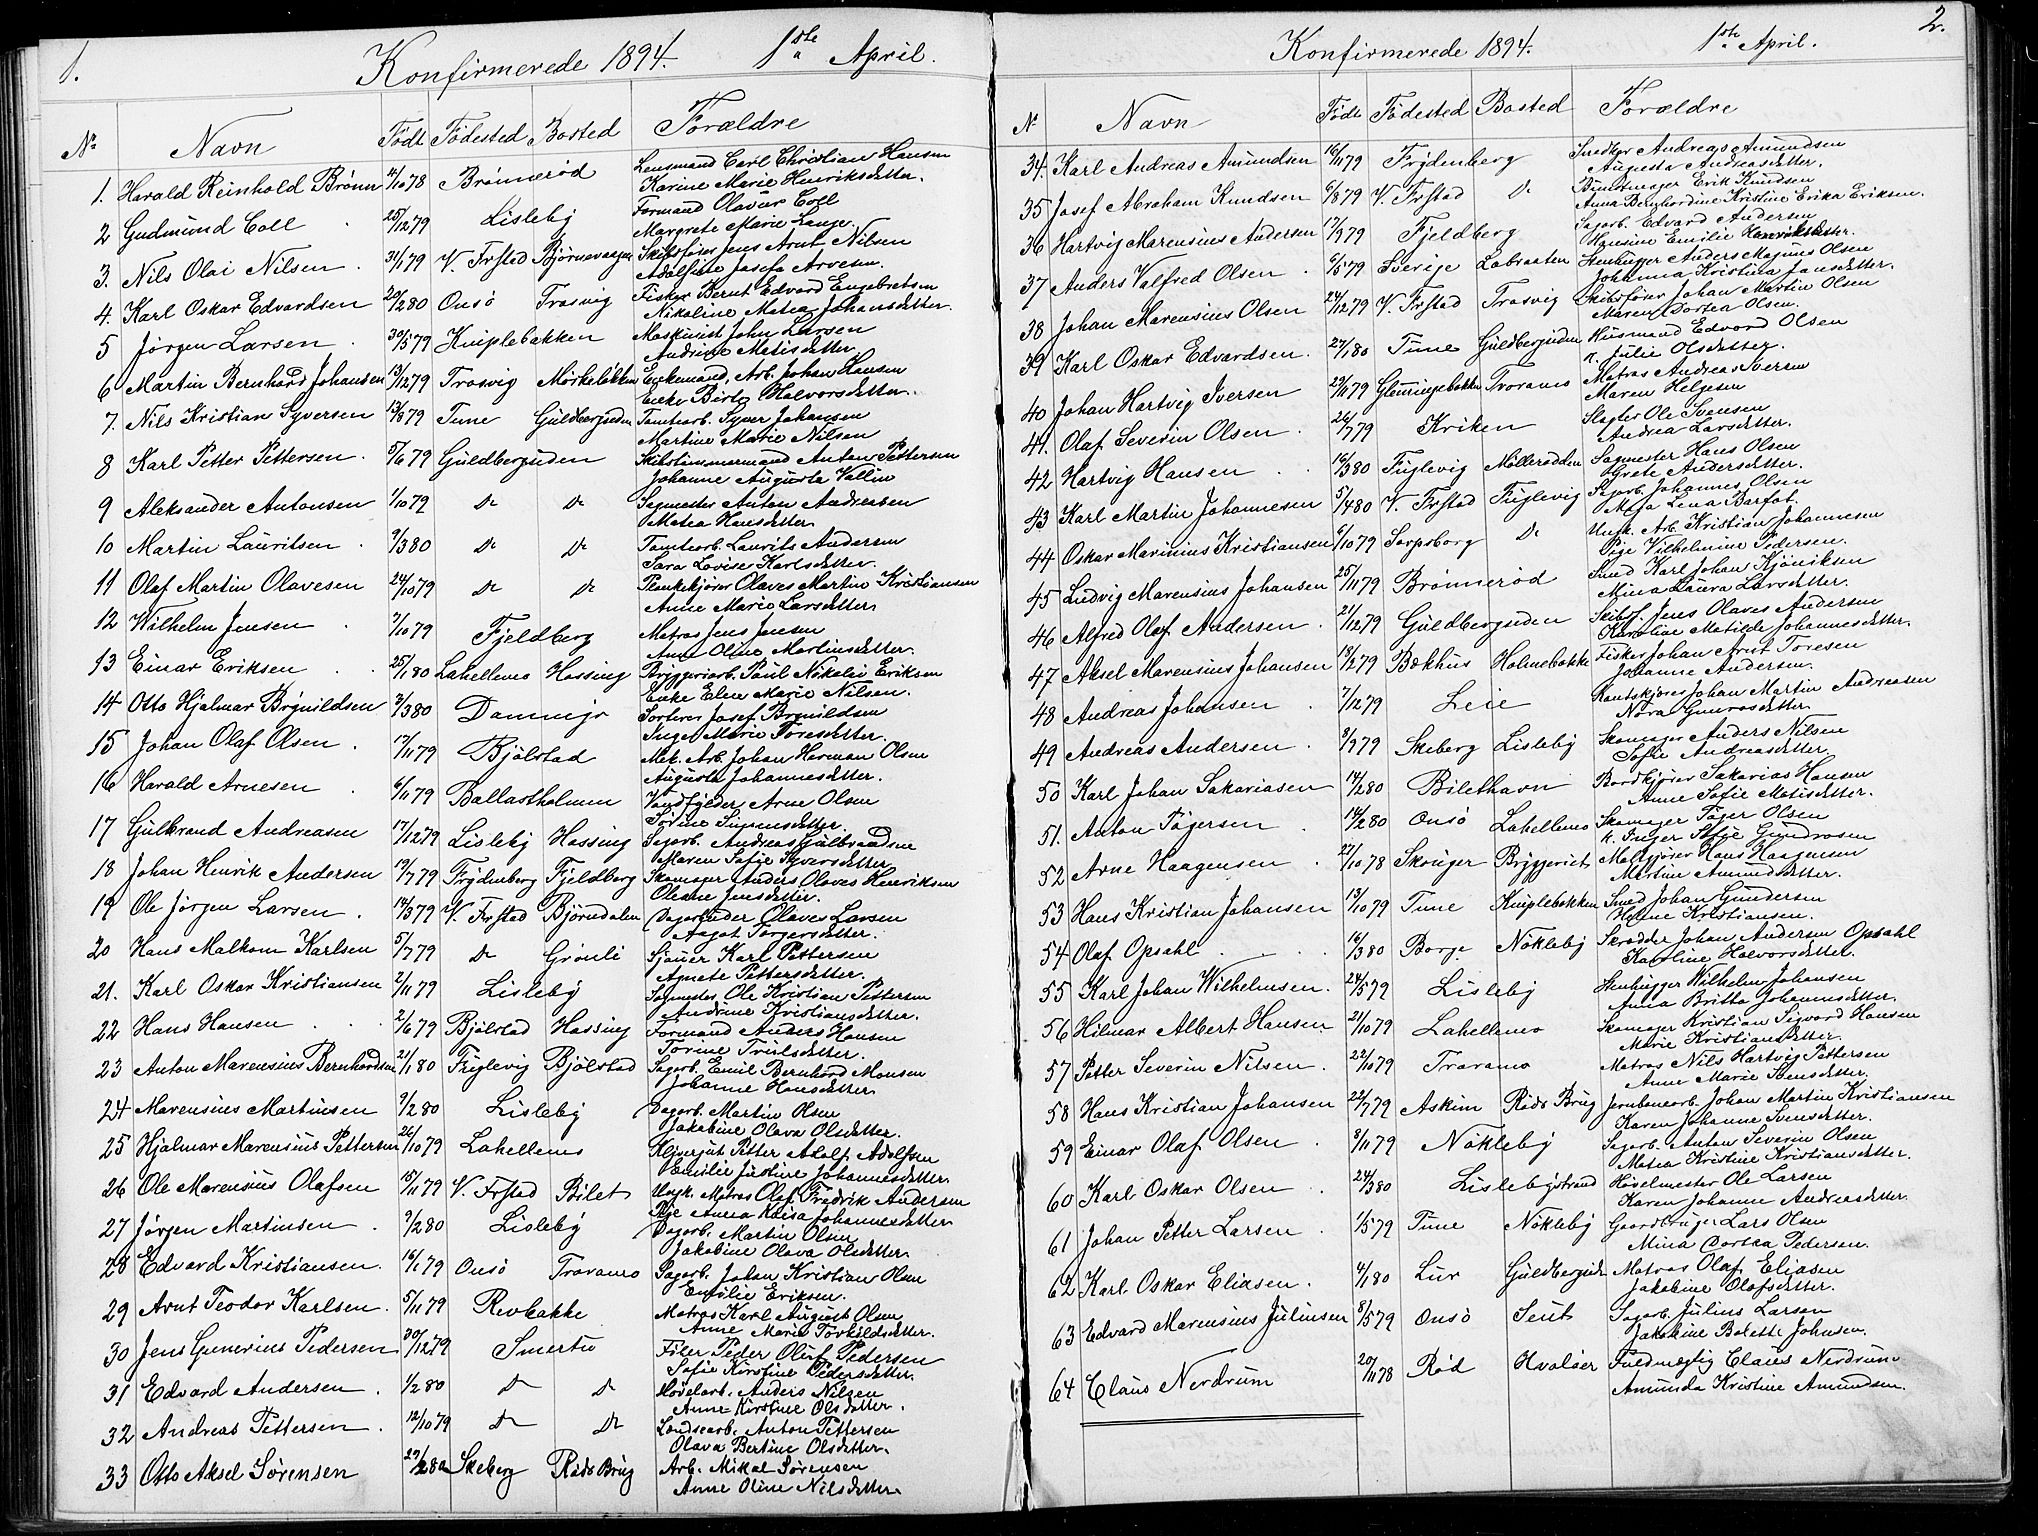 1.
Konfirmerede 1894. 1ste April.
No Navn Født Fødested Bosted Forældre
1. Harald Reinhold Brønn 4/10 78 Brønnerød Lensmand Carl Christian Hansen
Karine Marie Henriksdetter.
2 Gudmund Coll 25/12 79 Lisleby Formand Olavus Coll
Margrete Marie Lange.
3. Nils Olai Nilsen 31/1 79 V. Frstad Skibsfører Jens Arnt Nilsen
Adolfine Josefa Arvesen.
4. Karl Oskar Edvardsen 20/2 80 Onsö Trosvig Fisker Bernt Edvard Engebretsen
Nikoline Matea Johansdetter.
5 Jørgen Larsen 30/5 79 Kniplebakken Maskinist John Larsen
Andrine Matisdetter
6 Martin Bernhard Johansen 13/12 79 Trosvig Mörkeløkken Enkemand, Arb. Johan Hansen
Enke Birte Halvorsdetter.
7. Nils Kristian Syversen 12/8 79 Tune Guldbergsuden Tomtearb. Syver Johansen
Martine Marie Nilsen
8 Karl Petter Pettersen 5/6 79 Guldbergsuden Skibstimmermand Anton Pettersen
Johanne Augusta Vallin
9 Aleksander Antonsen 1/10 79 Do Do Sagmester Anton Andreasen
Matea Hansdetter
10 Martin Lauritsen 9/3 80 Do Do Tomtearb. Laurits Andersen
Sara Lovise Karlsdetter.
11 Olaf Martin Olavesen 24/10 79 Do Do Plankekjører Olaves Martin Kristiansen
Anne Marie Larsdetter
12 Wilhelm Jensen 7/10 79 Fjeldberg Matros Jens Jensen
Anne Oline Martinsdetter.
13 Einar Eriksen 25/1 80 Lahellemo Hassing Bryggeriarb. Paul Nikolai Eriksen
Enke Elen Marie Nilsen.
14 Otto Hjalmar Brynildsen 3/3 80 Dammyr Sorterer Josef Brynildsen
Inger Marie Toresdetter.
15 Johan Olaf Olsen 17/11 79 Bjölstad Mek. Arb. Johan Herman Olsen
Augusta Johannesdetter.
16 Harald Arnesen 6/11 79 Ballastholmen Vandfylder Arne Olsen
Sörine Simensdetter.
17 Gulbrand Andreasen 17/12 79 Lisleby Hassing Sagarb. Andreas Gulbrandsen
Maren Sofie Syversdetter
18 Johan Henrik Andersen 19/7 79 Frydenberg Fjeldberg Skomager Anders Olaves Henriksen
Oleane Jensdetter.
19 Ole Jörgen Larsen 14/3 79 V. Frstad Björndalen Dagarbeider Olaves Larsen
Aagot Torgersdetter.
20 Hans Malkom Karlsen 5/7 79 Do Grönli Sjouer Karl Pettersen
Agnete Pettersdetter.
21. Karl Oskar Kristiansen 2/11 79 Lisleby Sagmester Ole Kristian Pettersen
Andrine Kristiansdetter.
22 Hans Hansen 2/6 79 Bjölstad Hassing Formand Anders Hansen
Torine Trulsdetter.
23 Anton Marensius Bernhardsen 21/1 80 Fuglevig Bjölstad Sagarb. Emil Bernhard Monsen
Johanne Hansdetter
24 Marensius Martinsen 9/2 80 Lisleby Dagarb. Martin Olsen
Jakobine Olava Olsdetter.
25 Hjalmar Marensius Pettersen 26/10 79 Lahellemo Petter Adolf Adolfsen
Emilie Justine Johannesdetter.
26 Ole Marensius Olafsen 15/11 79 V. Frstad Bilet Ungk. Matros Olaf Fredrik Andersen
Pige Anna Kaisa Johannesdetter
27 Jørgen Martinsen 9/2 80 Lisleby Dagarb. Martin Olsen
Jakobine Olava Olsdetter.
28 Edvard Kristiansen. 16/1 79 Onsö Traramo Sagarb. Johan Kristian Olsen
Emilie Eriksen.
29 Arnt Teodor Karlsen 5/11 79 Revbakke Matros Karl August Olsen
Anne Marie Torkildsdetter.
30 Jens Gunerius Pedersen 30/12 79 Smertu Filer Peder Oluf Pedersen
Sofie Kirstine Pedersdetter.
31 Edvard Andersen 1/2 80 Do Do Høvelarb. Anders Nilsen
Anne Kirstine Olsdetter.
32 Andreas Pettersen 12/10 79 Do Do Londsearb. Anton Pettersen
Olava Bertine Olsdetter.
33 Otto Aksel Sörensen 29/2 80 Skeberg Röds Brug Arb. Mikal Sörensen
Anne Oline Nilsdetter.
2.
Konfirmerede 1894. 1ste April.
No Navn Födt Födested Bosted Forældre
34. Karl Andreas Amundsen 16/11 79 Frydenberg Snedker Andreas Amundsen
Augusta Andreasdetter.
35 Josef Abraham Knudsen 6/8 79 V. Frstad Do Buntmager Erik Knudsen
Anna Bernhardine Kristine Erika Eriksen.
36 Hartvig Marensius Andersen 17/9 79 Fjeldberg Sagarb. Edvard Andersen
Hansine Emilie Henriksdetter.
37 Anders Valfred Olsen 6/5 79 Sverige Labraaten Stenhugger Anders Magnus Olsen
Johanna Kristina Jansdetter.
38 Johan Marensius Olsen 24/12 79 V. Frstad Trosvig Skibsfører Johan Martin Olsen
Maren Dortea Olsen.
39 Karl Oskar Edvardsen. 27/1 80 Tune Guldbergsuden Husmand Edvard Olsen
K. Julie Olsdetter.
40 Johan Hartvig Iversen 29/11 79 Glemmingebakken Traramo Matros Andreas Iversen
Maren Helgesen
41. Olaf Severin Olsen 26/7 79 Kriken Slagter Ole Svensen
Andrea Larsdetter.
42 Hartvig Hansen 16/3 80 Fuglevig Møllerodden Sagmester Hans Olsen
Grete Andersdetter.
43 Karl Martin Johannesen 5/4 80 V. Frstad Fuglevig Sagarb. Johannes Olsen
Maja Lena Barfot.
44 Oskar Marinius Kristiansen 6/10 79 Sarpsborg Do Ungk. Arb. Kristian Johannesen
Pige Vilhelmine Pedersen.
45 Ludvig Marensius Johansen 25/11 79 Brønnerød Smed Karl Johan
Mina Laura Larsdetter.
46 Alfred Olaf Andersen 21/12 79 Guldbergsuden Skibsf. Jens Olaves Andersen
Karoline Matilde Johannesdetter.
47 Aksel Marensius Johansen 18/2 79 Bækhus Holmebakke Fisker Johan Arnt Toresen
Johanne Andersen.
48 Andreas Johansen 7/12 79 Leie Johan Martin Andreasen
Nora Gunrosdetter
49 Andreas Andersen 3/9 79 Skeberg Lisleby Skomager Anders Nilsen
Sofie Andreasdetter
50 Karl Johan Sakariasen 14/2 80 Bilethavn Bordkjører Sakarias Hansen
Anne Sofie Matisdetter.
51. Anton Tøgersen 14/2 80 Onsö Lahellemo Skomager Töger Olsen
K. Inger Sofie Gundrosen
52 Arne Haagensen 27/10 78 Skouger Bryggeriet Maltgjører Hans Haagensen
Martine Amundsdetter.
53 Hans Kristian Johansen 13/10 79 Tune Kniplebakken Smed Johan Gundersen
Helene Kristiansen.
54 Olaf Opsahl 16/3 80 Borge Nökleby Skrædder Johan Andersen Opsahl
Karoline Halvorsdetter.
55 Karl Johan Wilhelmsen. 24/5 79 Lisleby Stenhugger Wilhelm Johansen
Anna Britta Johannesdetter.
56 Hilmar Albert Hansen 21/10 79 Lahellemo Skomager Kristian Sigvard Hansen
Marie Kristiansdetter.
57 Petter Severin Nilsen. 22/10 79 Traramo Matros Nils Hartvig Pettersen
Anne Marie Svensdetter.
58 Hans Kristian Johansen 22/7 79 Askim Röds Brug Jernbanearb. Johan Martin Kristiansen
Karen Johanne Svensdetter.
59 Einar Olaf Olsen 8/11 79 Nökleby Sagarb. Anton Severin Olsen
Matea Kristine Kristiansdetter.
60 Karl Oskar Olsen 24/3 80 Lislebystrand Høvelmester Ole Larsen
Karen Johanne Andreasdetter.
61 Johan Petter Larsen 1/5 79 Tune Nöklebj Gaardbruger Lars Olsen
Mina Dortea Pedersen.
62 Karl Oskar Eliasen. 4/1 80 Lur Guldbergsude Matros Olaf Eliasen
Jakobine Olafsdetter.
63 Edvard Marensius Juliusen 8/5 79 Onsö Seut Sagarb. Julius Larsen
Jakobine Bolette Johnsen.
64 Claus Nerdrum 20/11 78 Röd Hvaløer Fuldmægtig Claus Nerdrum
Amunda Kristine Amundsen.